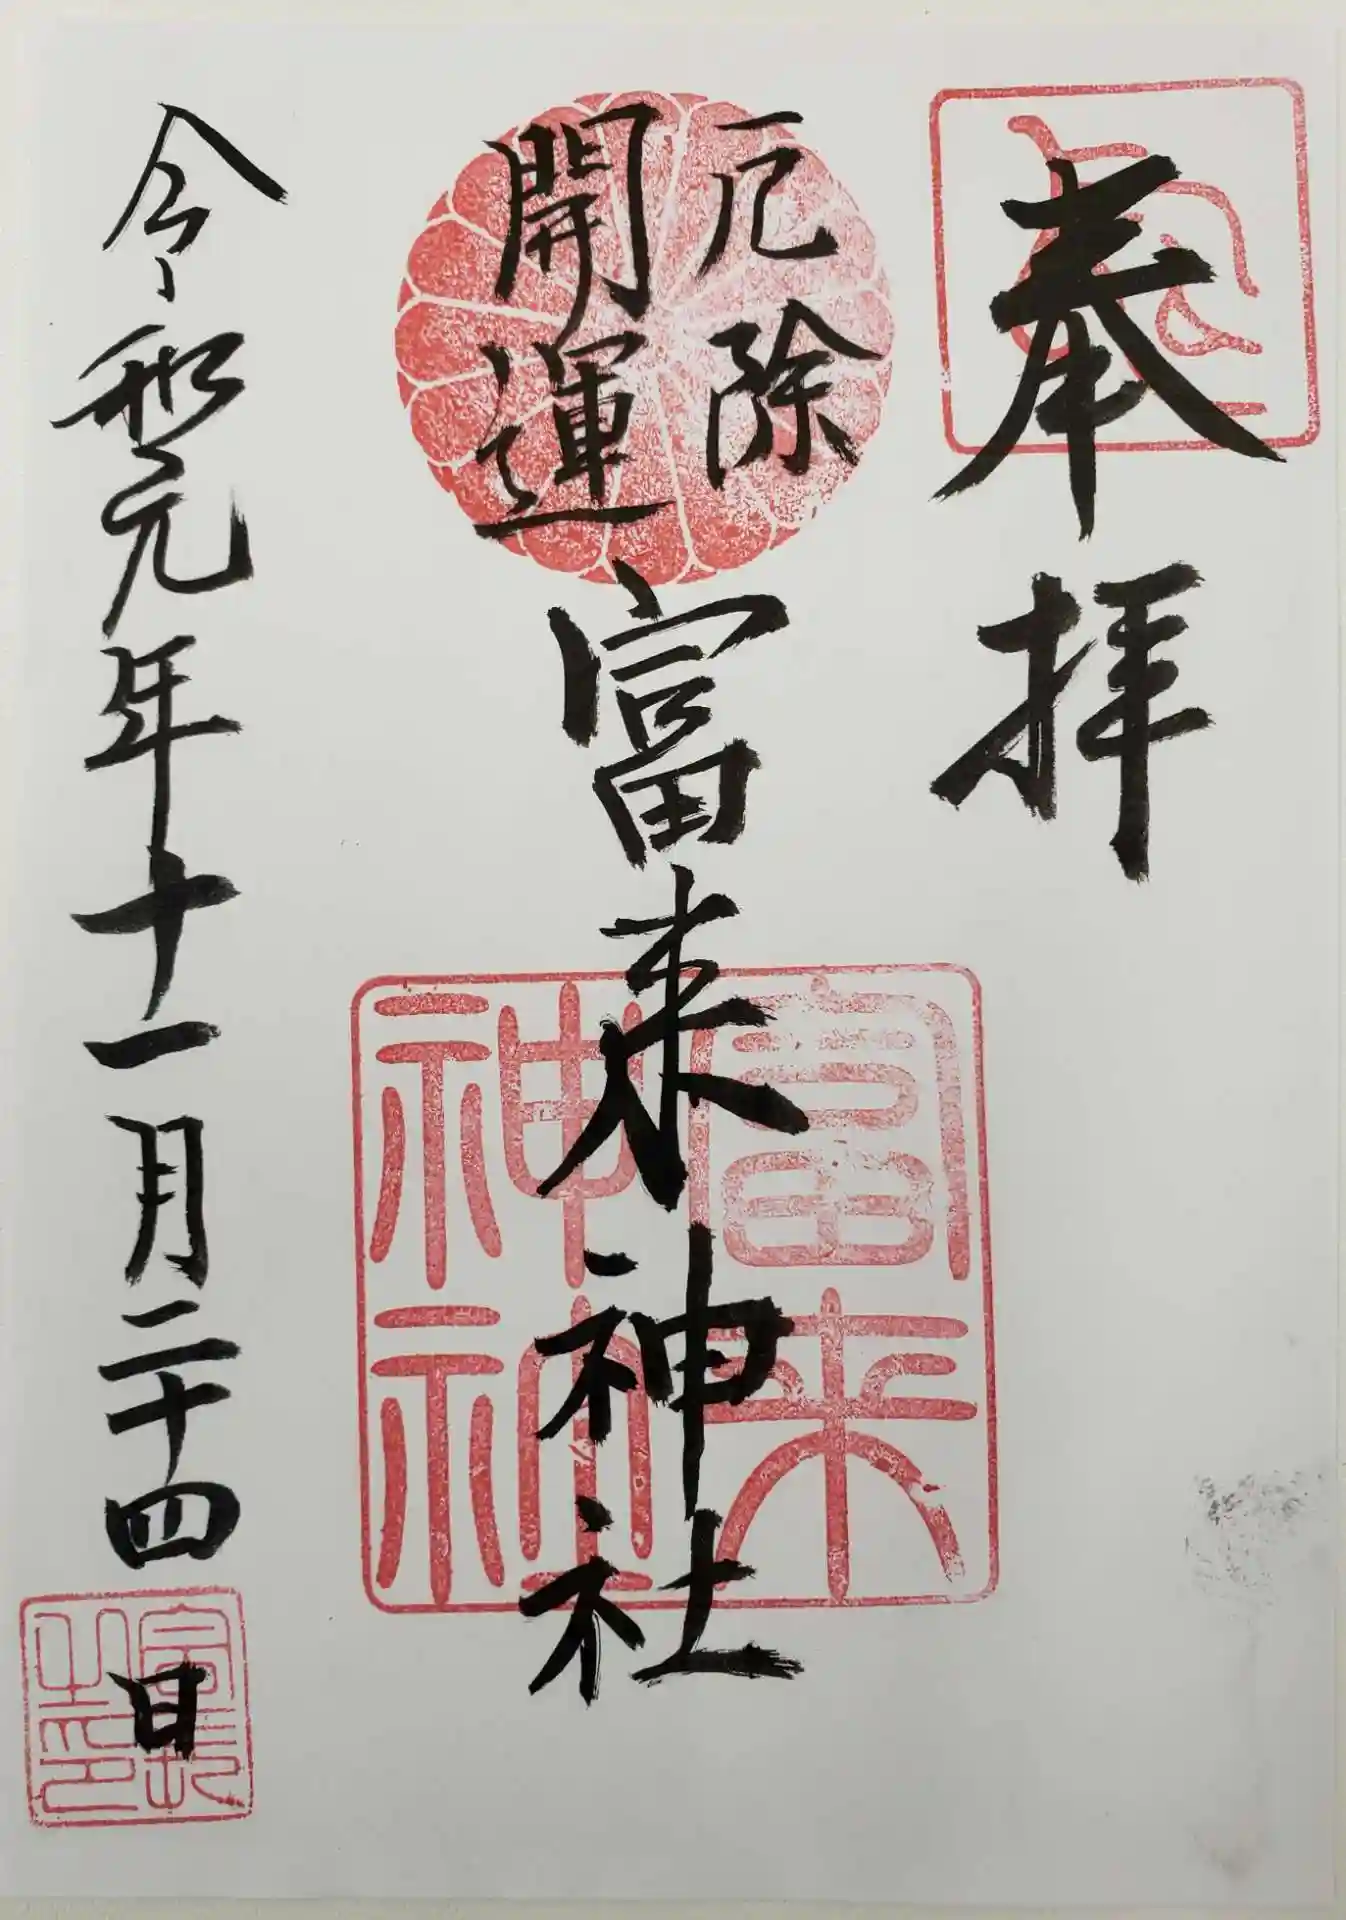 奉拝
厄除
開運
富来神社
富来
神社
令和元年十一月二十四日
宮司
之印